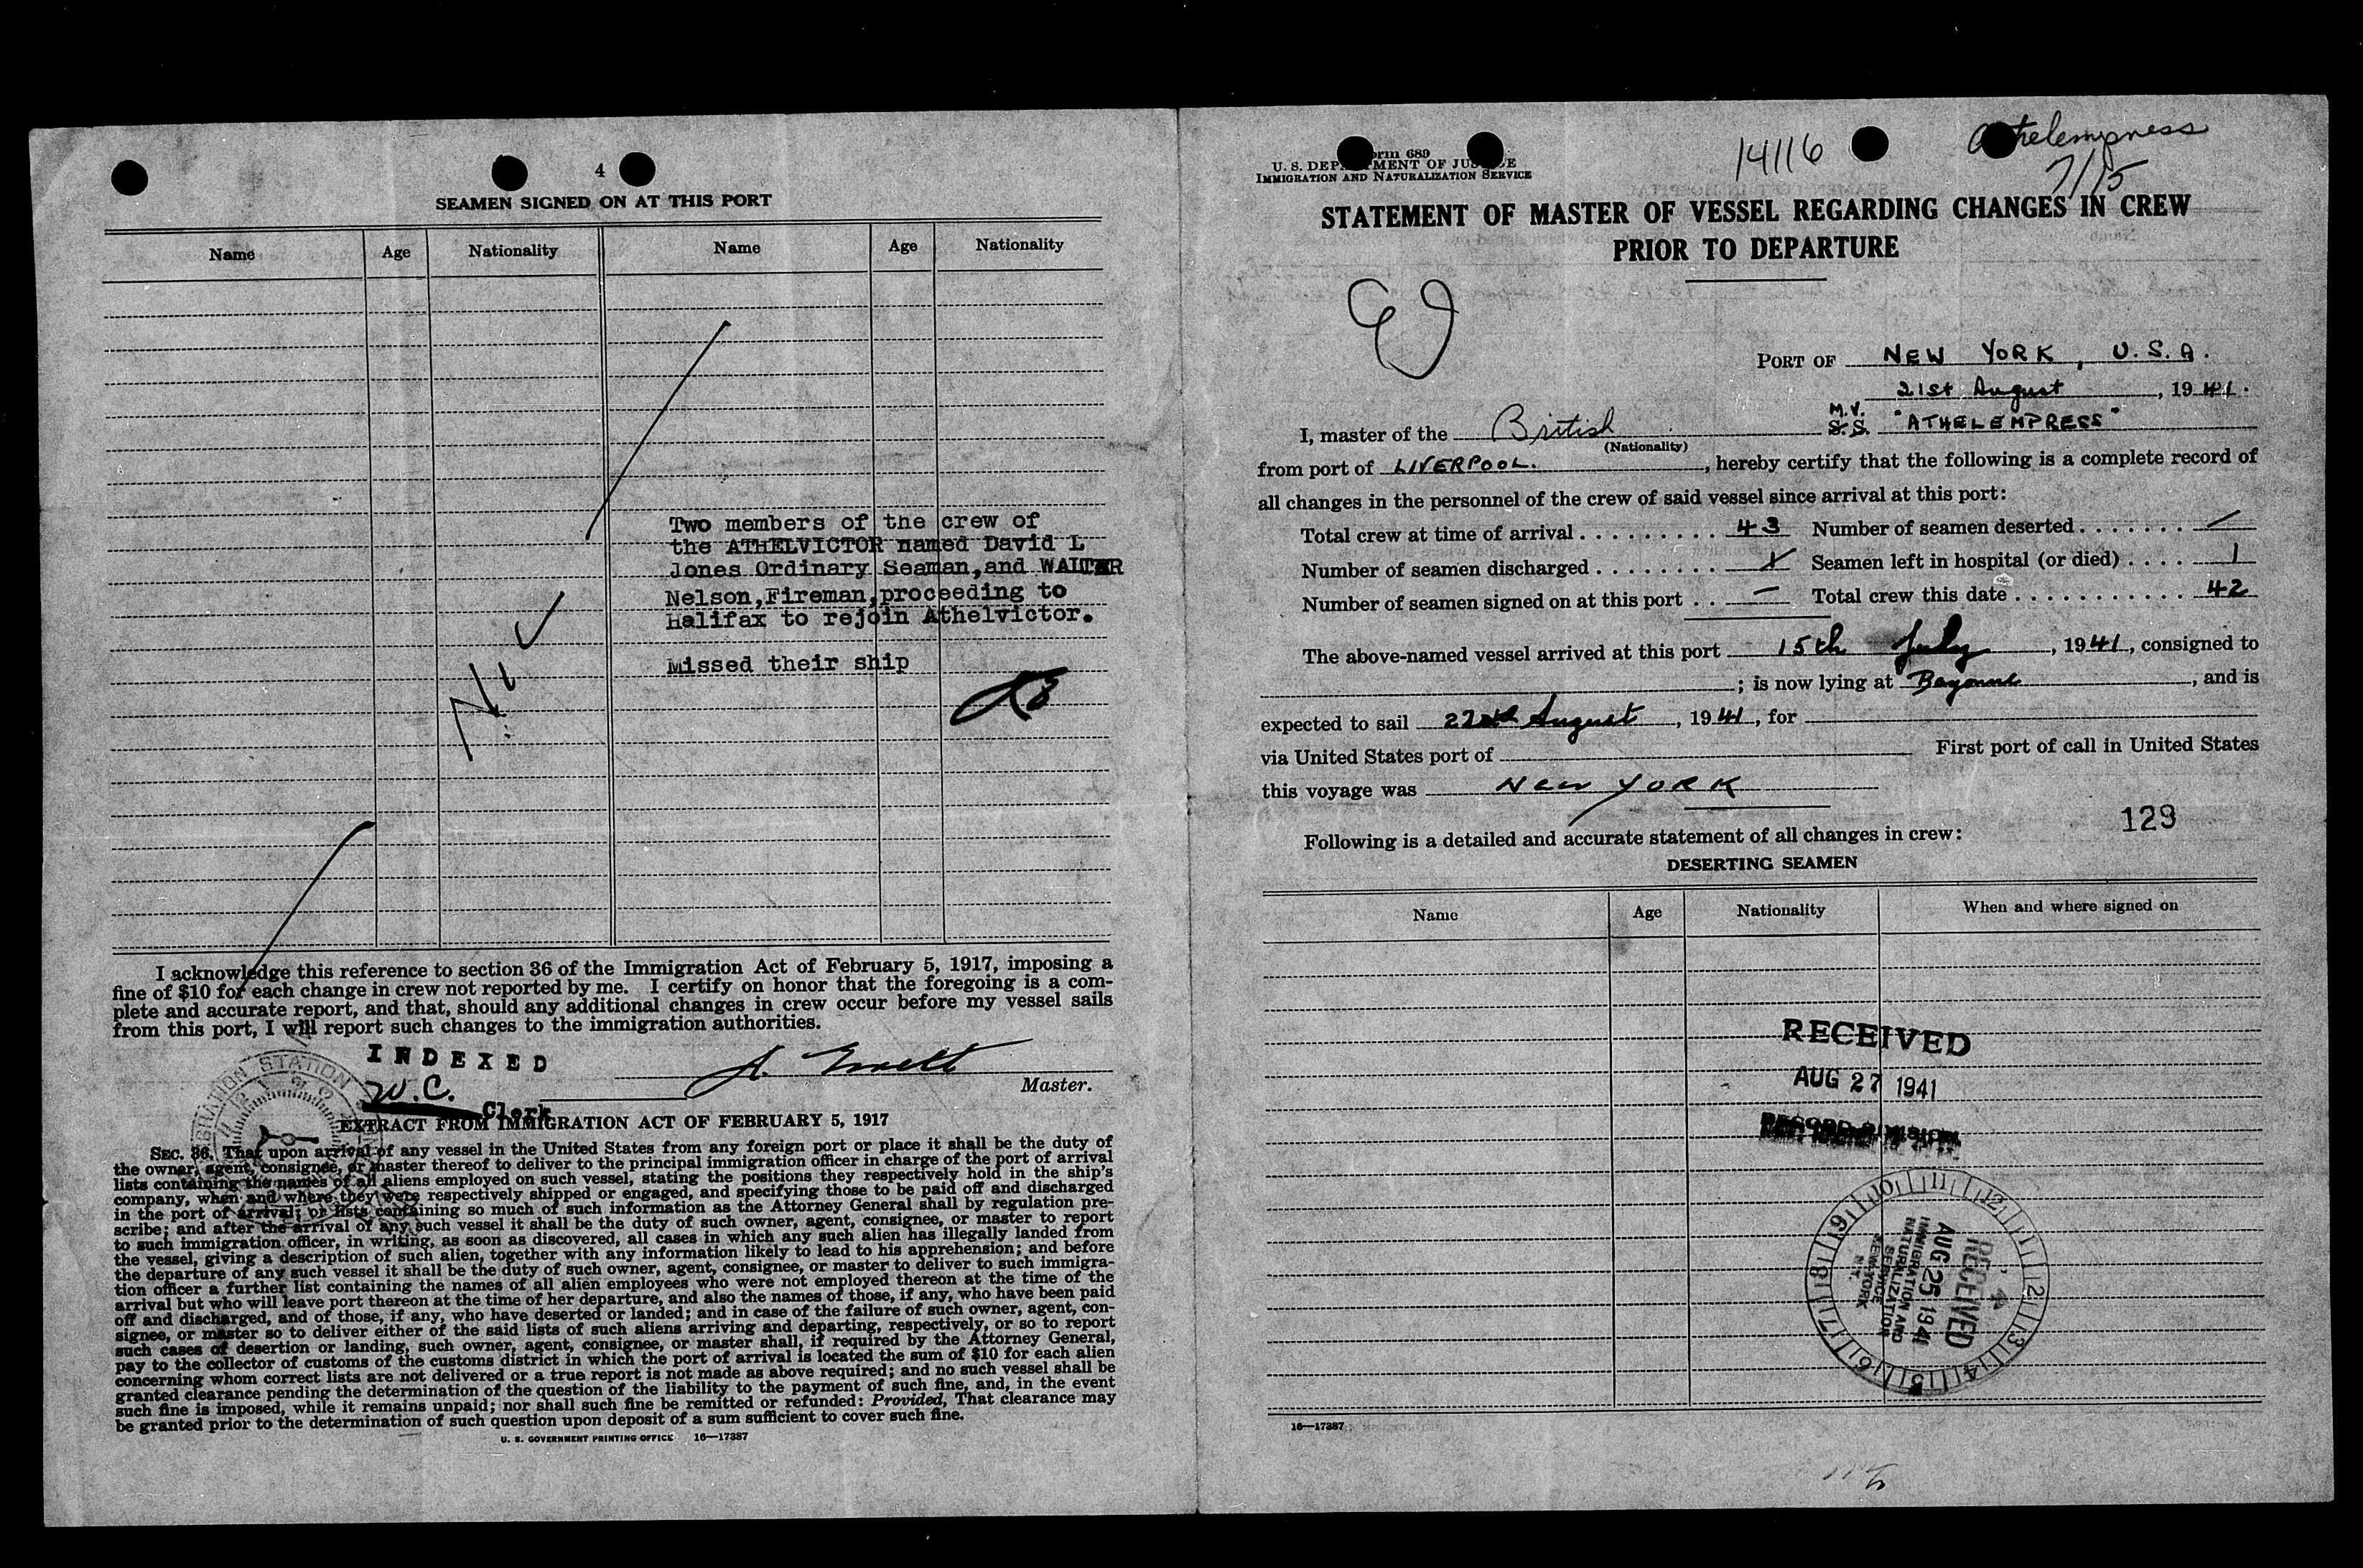 4
SEAMEN SIGNED ON AT THIS PORT
Name Age Nationality Name Age Nationality
Two members of the crew of
the ATHELVICTOR named David L
Jones Ordinary Seaman,and WALTER
Nelson,Fireman,proceeding to
Halifax to rejoin Athelvictor.
Missed their ship
Nil
I acknowledge this reference to section 36 of the Immigration Act of February 5, 1917, imposing a
fine of $10 for each change in crew not reported by me. I certify on honor that the foregoing is a com-
plete and accurate report, and that, should any additional changes in crew occur before my vessel sails
from this port, I will report such changes to the immigration authorities.
INDEXED
W.C.
Clerk
Master.
EXTRACT FROM IMMIGRATION ACT OF FEBRUARY 5, 1917
SEC. 36. That upon arrival of any vessel in the United States from any foreign port or place it shall be the duty of
the owner, agent, consignee, or master thereof to deliver to the principal immigration officer in charge of the port of arrival
lists containing the names of all aliens employed on such vessel, stating the positions they respectively hold in the ship's
company, when and where they were respectively shipped or engaged, and specifying those to be paid off and discharged
in the port of arrival; or lists containing so much of such information as the Attorney General shall by regulation pre-
scribe; and after the arrival of any such vessel it shall be the duty of such owner, agent, consignee, or master to report
to such immigration officer, in writing, as soon as discovered, all cases in which any such alien has illegally landed from
the vessel, giving a description of such alien, together with any information likely to lead to his apprehension; and before
the departure of any such vessel it shall be the duty of such owner, agent, consignee, or master to deliver to such immigra-
tion officer a further list containing the names of all alien employees who were not employed thereon at the time of the
arrival but who will leave port thereon at the time of her departure, and also the names of those, if any, who have been paid
off and discharged, and of those, if any, who have deserted or landed; and in case of the failure of such owner, agent, con-
signee, or master so to deliver either of the said lists of such aliens arriving and departing, respectively, or so to report
such cases of desertion or landing, such owner, agent, consignee, or master shall, if required by the Attorney General,
pay to the collector of customs of the customs district in which the port of arrival is located the sum of $10 for each alien
concerning whom correct lists are not delivered or a true report is not made as above required; and no such vessel shall be
granted clearance pending the determination of the question of the liability to the payment of such fine, and, in the event
such fine is imposed, while it remains unpaid; nor shall such fine be remitted or refunded: Provided, That clearance may
be granted prior to the determination of such question upon deposit of a sum sufficient to cover such fine.
U. S. GOVERNMENT PRINTING OFFICE 16—17387
Form 689
U. S. DEPARTMENT OF JUSTICE
IMMIGRATION AND NATURALIZATION SERVICE
14116
Athelempress
7/15
STATEMENT OF MASTER OF VESSEL REGARDING CHANGES IN CREW
PRIOR TO DEPARTURE
PORT OF NEW YORK, U.S.A.
21st August, 1941.
I, master of the British M.V. S.S. "ATHELEMPRESS"
(Nationality)
from port of LIVERPOOL., hereby certify that the following is a complete record of
all changes in the personnel of the crew of said vessel since arrival at this port:
Total crew at time of arrival 43 Number of seamen deserted
Number of seamen discharged Seamen left in hospital (or died) 1
Number of seamen signed on at this port — Total crew this date 42
The above-named vessel arrived at this port 15th July, 1941, consigned to
; is now lying at Bayonne, and is
expected to sail 22nd August, 1941, for
via United States port of First port of call in United States
this voyage was NEW YORK
129
Following is a detailed and accurate statement of all changes in crew:
DESERTING SEAMEN
Name Age Nationality When and where signed on
RECEIVED
AUG 27 1941
RECORD DIVISION
RECEIVED
AUG 25 1941
IMMIGRATION AND
NATURALIZATION
SERVICE
NEW YORK
N.Y.
16—17387